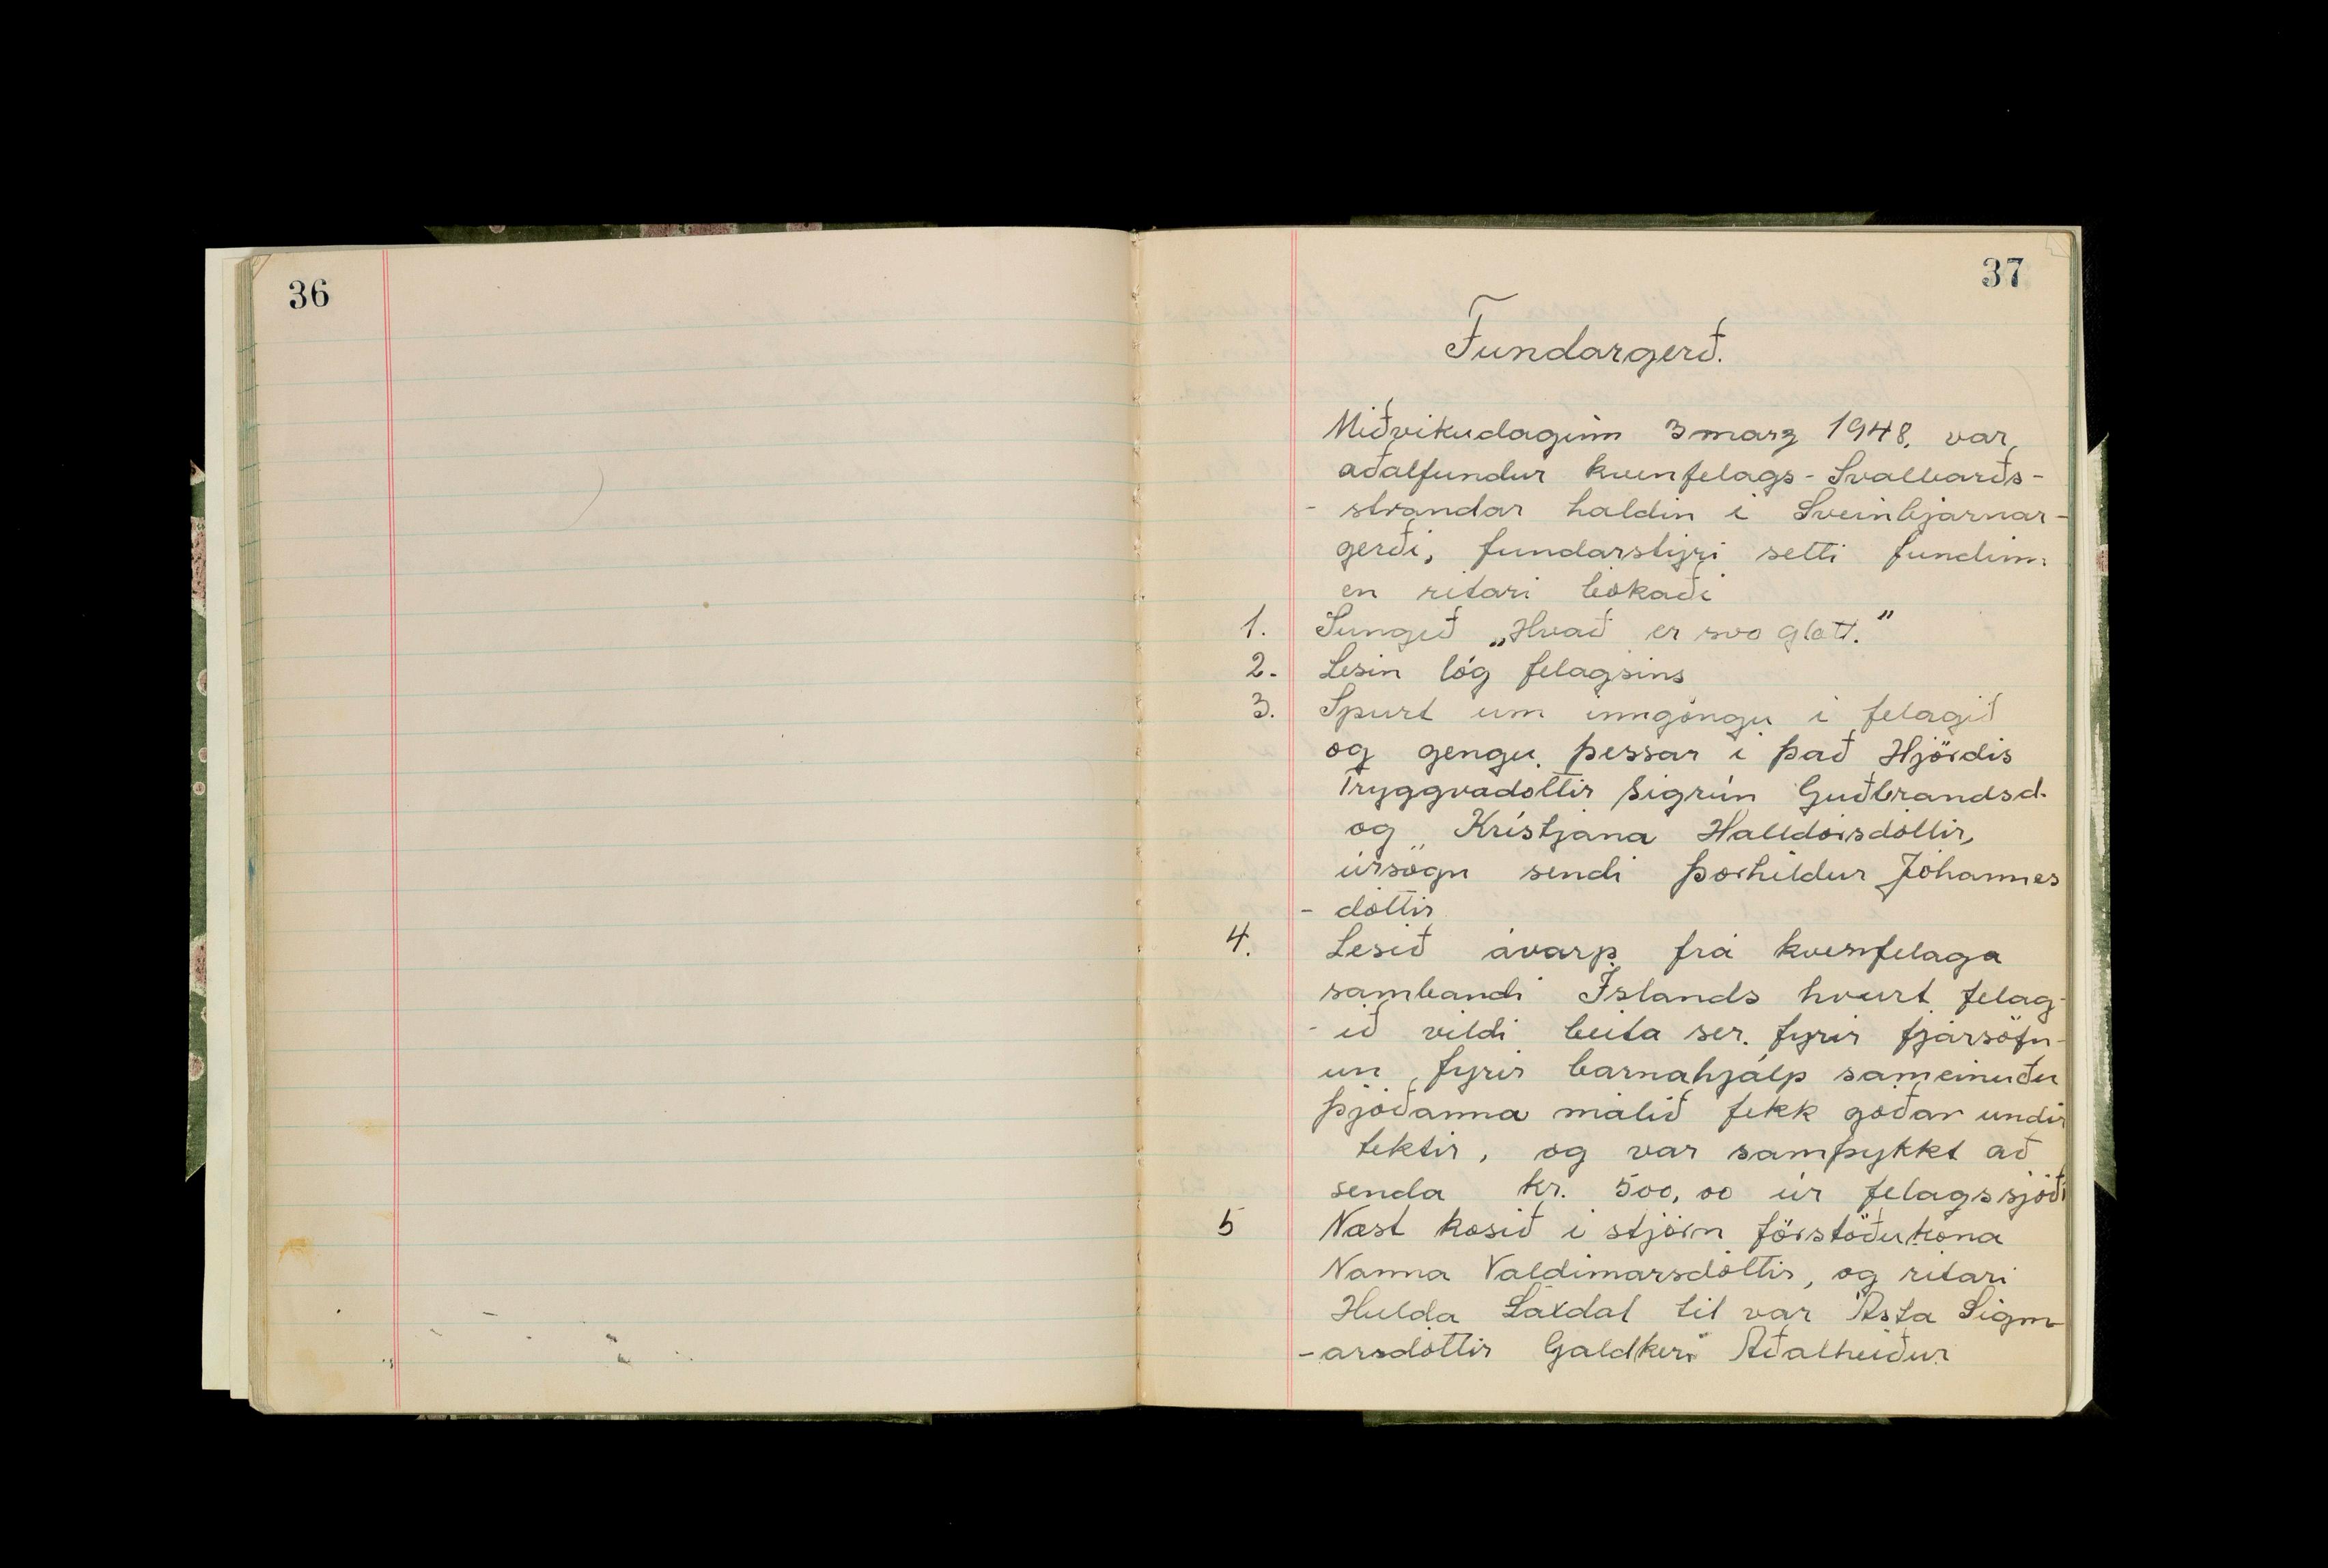 36
37
Fundargerð.
Miðvikudaginn 3 marz 1948. var
aðalfundur kvenfelags - Svalbarðs-
- strandar haldin i Sveinbjarnar-
gerði, fundarstýri setti fundinn
en ritari bókaði
1. Sungið „Hvað er svo glatt."
2. Lesin lóg felagsins
3. Spurt um inngöngu i felagið
og gengu þessar i það Hjördis
Tryggvadóttir Sigrún Guðbrandsd.
og Kristjana Halldórsdóttir,
úrsögn sendi Þorhildur Jóhannes
- dóttir
4. Lesið ávarp frá kvenfelaga
sambandi Íslands hvurt felag-
- ið vildi beita ser. fyrir fjársöfn-
un, fyrir barnahjálp sameinuðu
þjóðanna málið fekk góðar undir
tektir, og var samþykkt að
senda kr. 500,00 úr felagssjóði
5 Næst kosið i stjórn förstöðukona
Nanna Valdimarsdóttir, og ritari
Hulda Laxdal til var Ásta Sigm-
- arsdóttir Galdkeri Aðalheiður